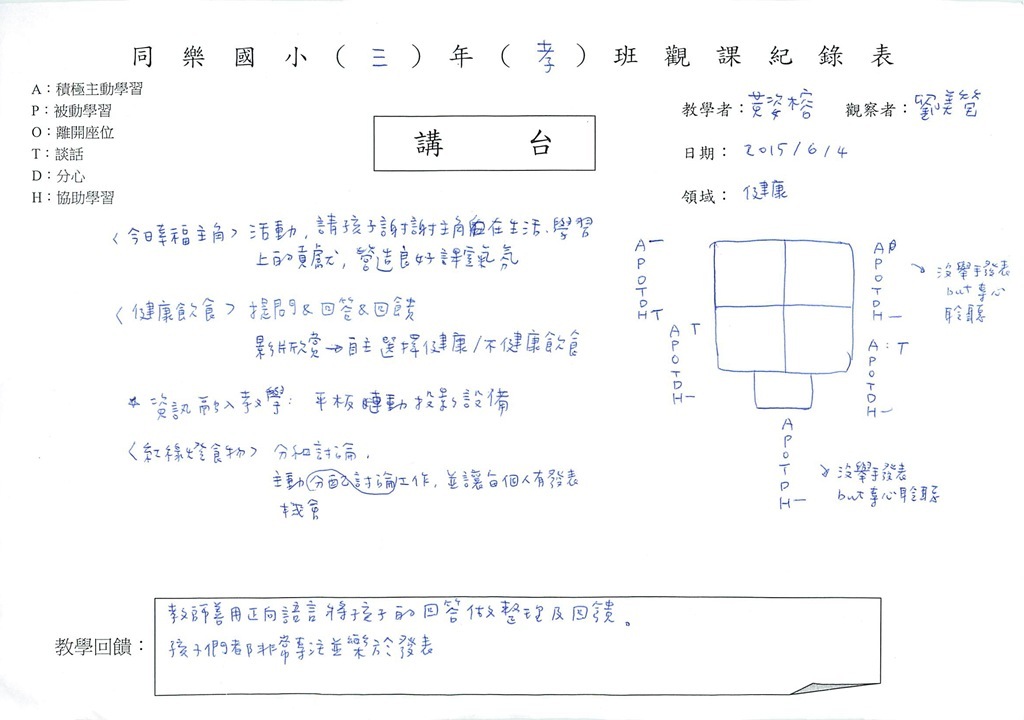 同樂國小(三)年(孝)班觀課紀錄表
A：積極主動學習
P：被動學習
O：離開座位
T：談話
D：分心
H：協助學習
講 台
教學者：黃姿榕 觀察者：劉美
日期： 2015/6/4
領域： 健康
〈今日幸福主角〉活動，請孩子謝謝主角在生活、學習
上的貢獻，營造良好課室氣氛
〈健康飲食〉提問&回答&回饋
影片欣賞→自主選擇健康/不健康飲食
* 資訊融入教學： 平板連動投影設備
〈紅綠燈食物〉分組討論，
主動分配討論工作，並讓每個人有發表
機會
A一
P
O
T
D
H T
A T
P
O
T
D
H一
A P
P
O
T
D
H一
沒舉手發表
but專心
聆聽
A：T
P
O
T
D
H一
A
P
O
T
D
H一
沒舉手發表
but專心聆聽
教學回饋：
教師善用正向語言將孩子的回答做整理及回饋。
孩子們都非常專注並樂於發表